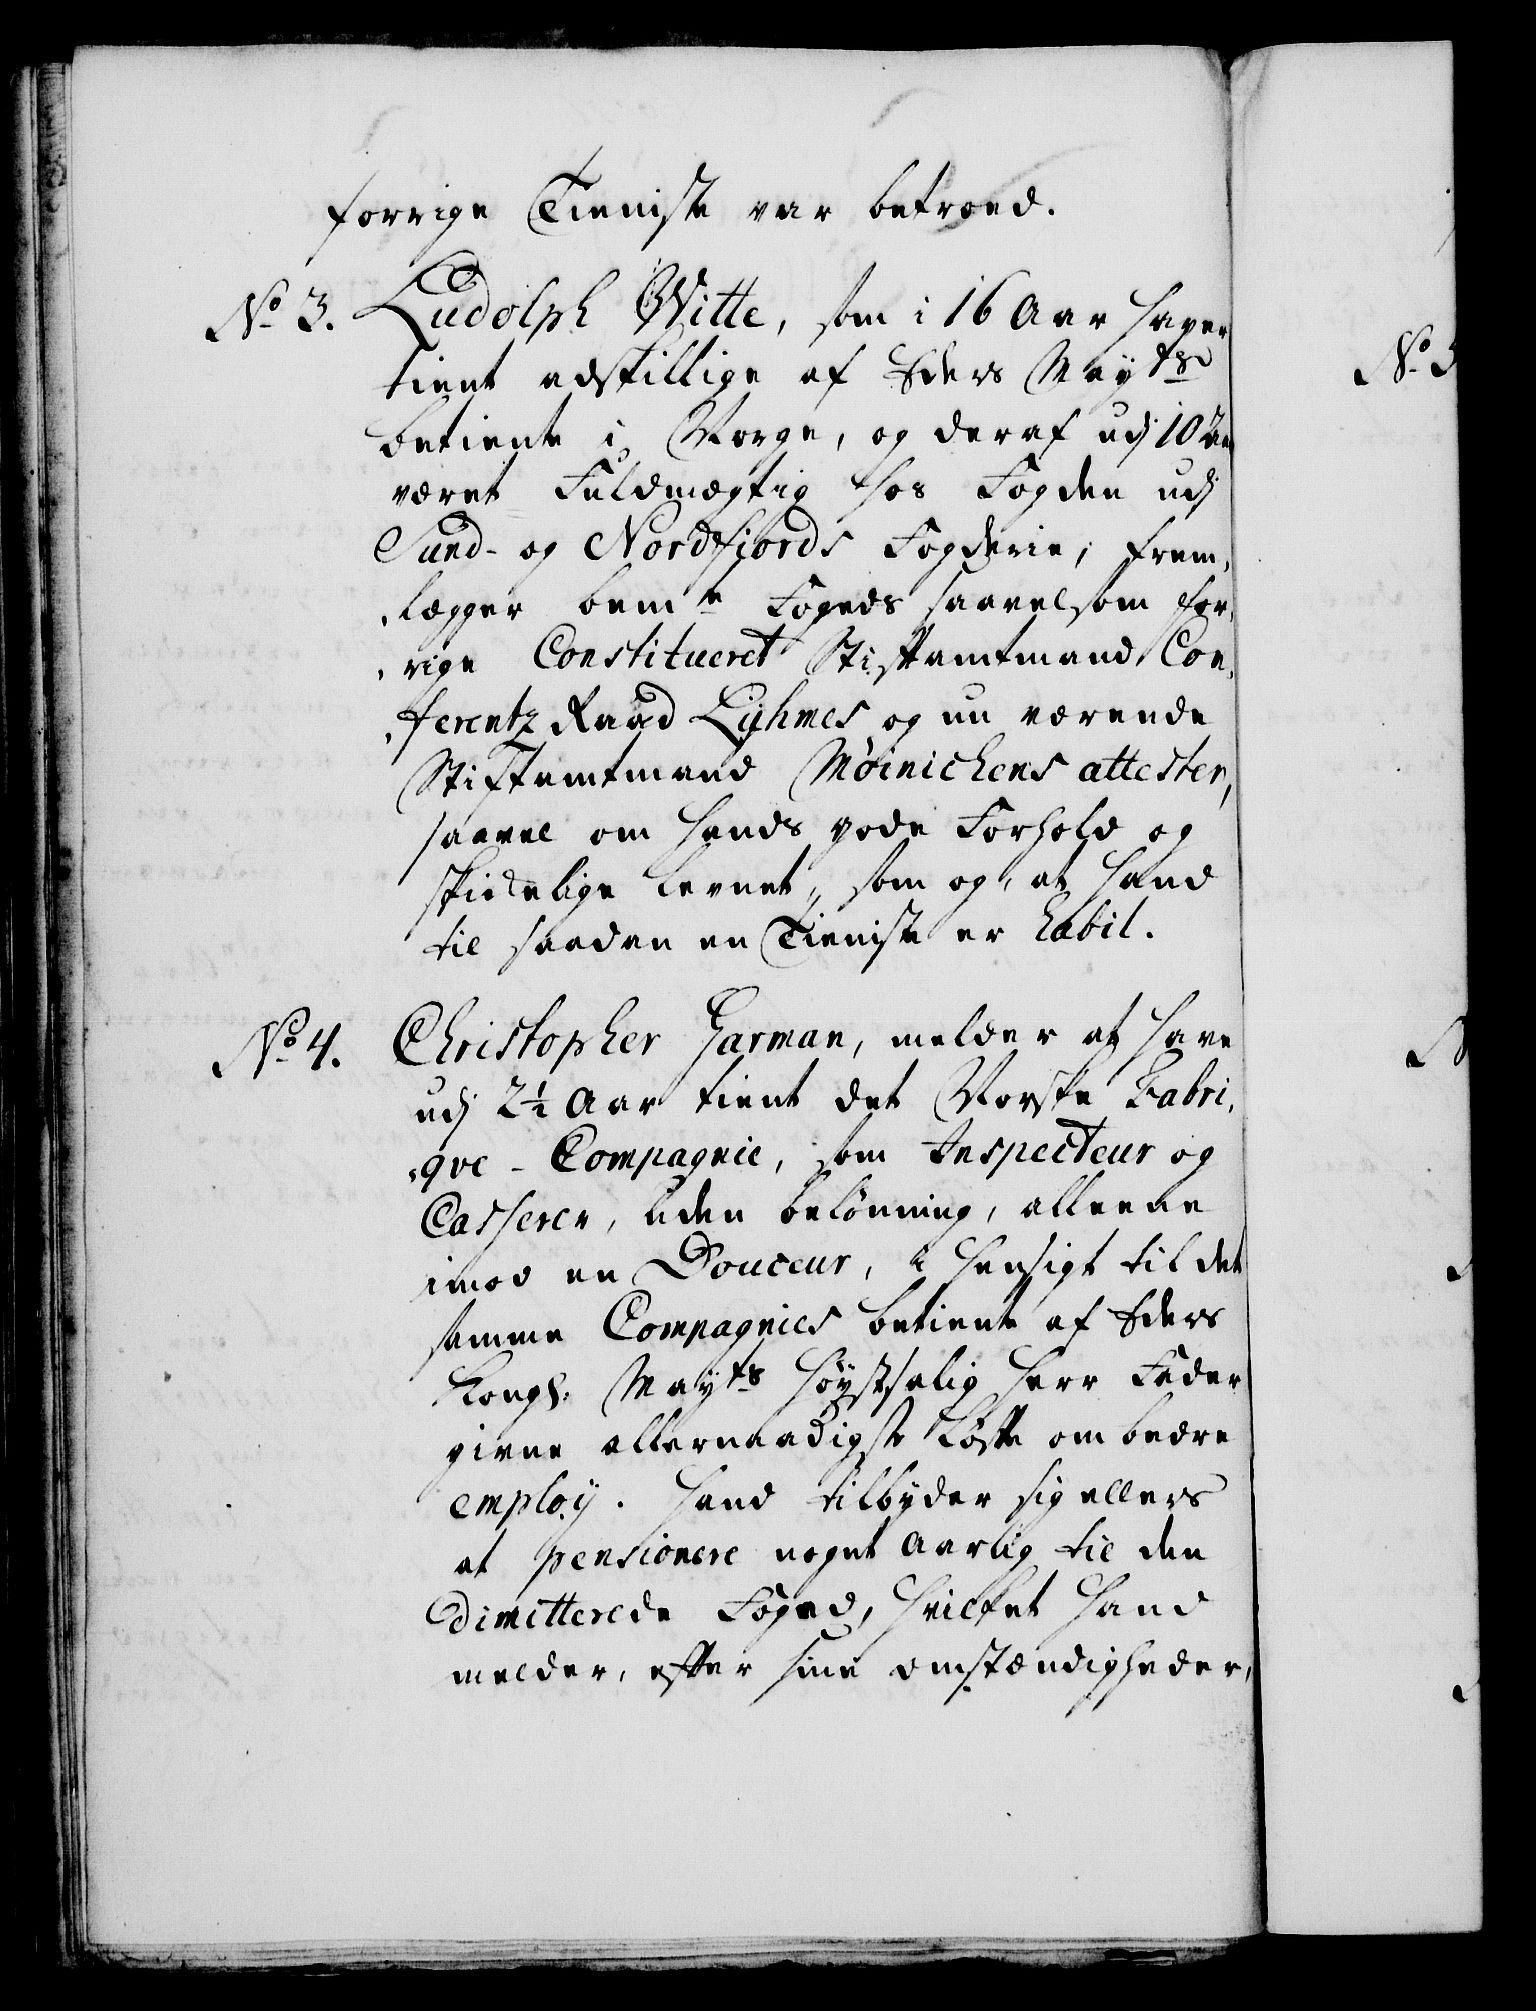 forrige Tieniste var betroed.
No 3. Ludolph Witte, som i 16 Aar haver
tient adskillige af Eders Mayts
betiente i Norge, og deraf udj 10 Aar
været Fuldmægtig hos Fogden udj
Sund- og Nordfiords Fogderie, frem-
-lægger bemte Fogeds saavelsom for-
-rige Constitueret Stiftamtmand Con-
-ferentz Raad Lyhmes og nu værende
Stiftamtmand Møinichens attester,
saavel om hands gode Forhold og
skickelige levnet, som og, at hand
til saadan en Tieniste er habil.
No 4. Christopher Garman, melder at have
udj 2½ Aar tient det Norske Fabri-
-qve-Compagnie, som Inspecteur og
Casserer, uden belønning, alleene
imod en Douceur, i hensigt til det
samme Compagnies betiente af Eders
Kongl. Mayts høystsalig Herr Fader
givne allernaadigste Løfte om bedre
employ. Hand tilbyder sig ellers
at pensionere noget aarlig til den
dimitterede Foged, hvilket hand
melder, efter sine omstændigheder,
No 5